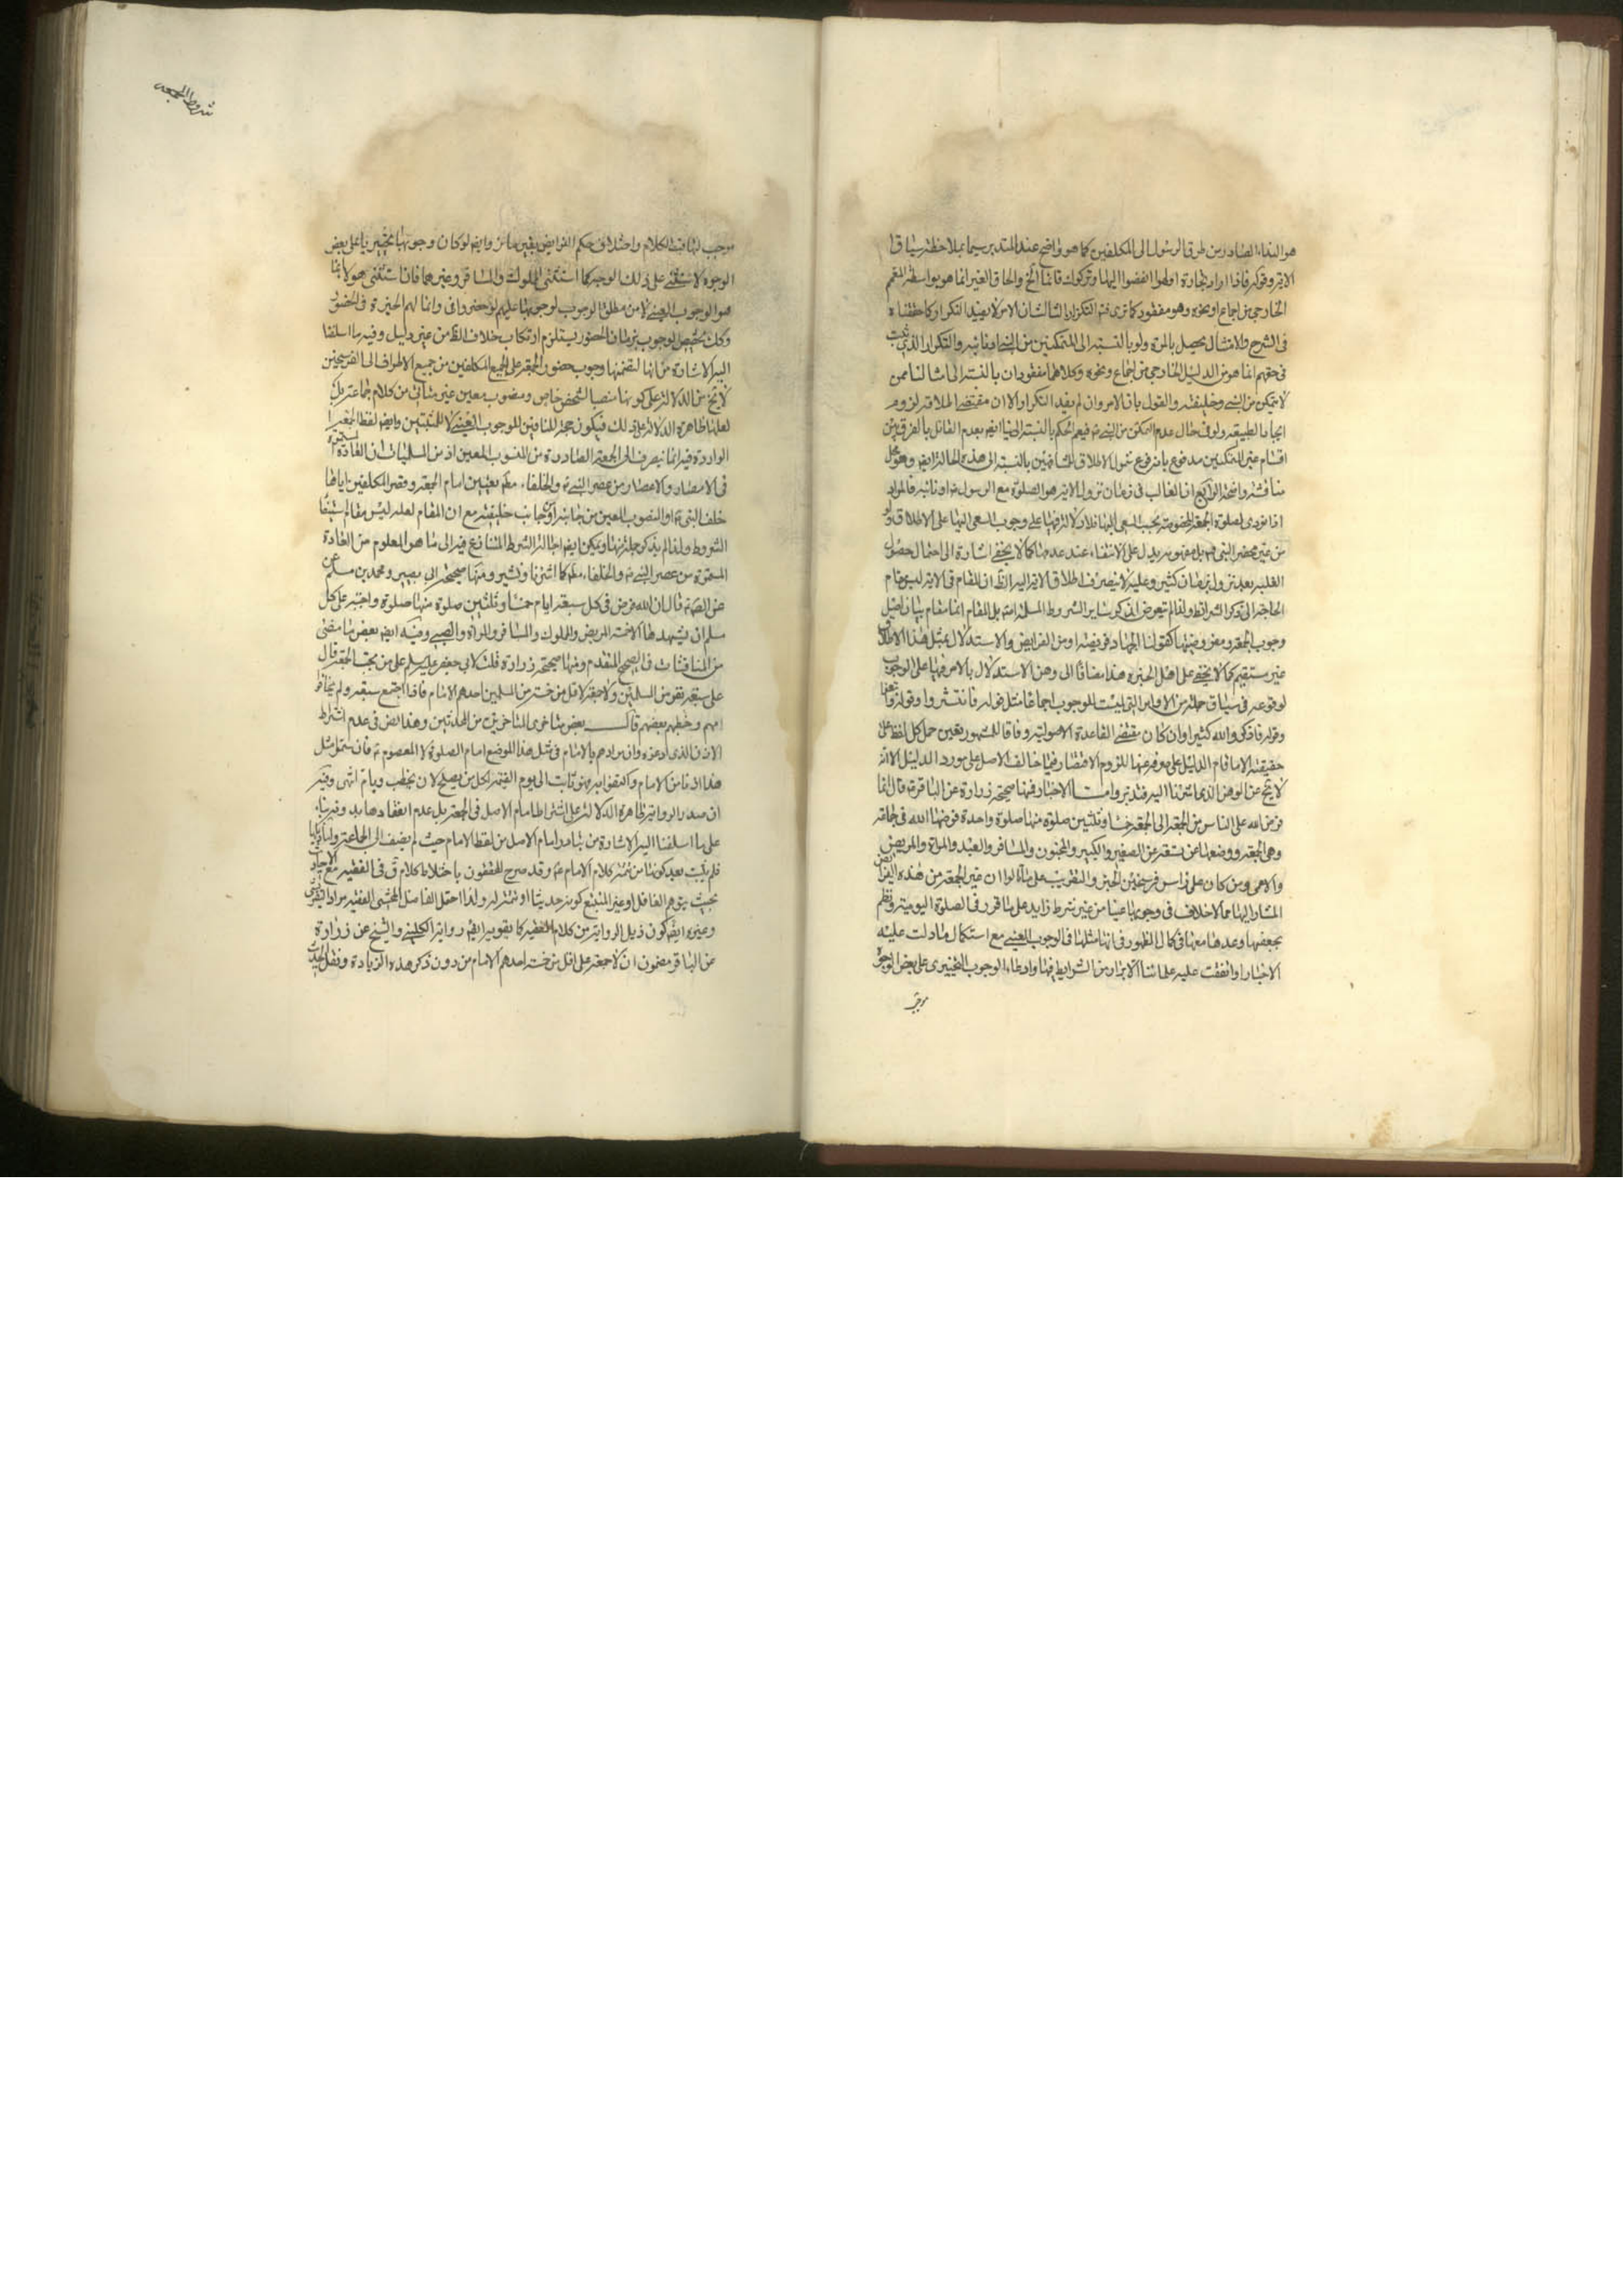 هو النداء الصادر من طرق الرسول الى المكلفين كما هو واضح عند المتدبر سيما بملاحظة سياق
الاية وقوله فاذا راوا تجارة او لهوا انفضوا اليها وتركوك قائما الخ والحاق الغير انما هو بواسطة المعمم
الخارجي من اجماع او نحوه وهو مفقود كما ترى فتم التكرار الثالث ان الامر لا يفيد التكرار كما حققناه
في الشرح والامتثال يحصل بالمرة ولو بالنسبة الى المتمكنين من النبي او نائبه والتكرار الذي ثبت
في حقهم انما هو من الدليل الخارجي من اجماع ونحوه وكلاهما مفقودان بالنسبة الى امثالنا ممن
لا يتمكن من النبي وخليفته والقول بان الامر وان لم يفد التكرار الا ان مقتضى الملاقة لزوم
ايجاد الطبيعة ولو في حال عدم التمكن من النبي ص فيعم الحكم بالنسبة الينا ايضا بعدم القائل بالفرق بين
اقسام غير المتمكنين مدفوع بانه فرع شمول الاطلاق للمشافهين بالنسبة الى هذه الحالة ايضا وهو محل
مناقشة واضحة الرابع ان الغالب في زمان نزول الاية هو الصلوة مع الرسول ص او نائبه فالمراد
اذا نودى لصلوة الجمعة المخصوصة يجب السعى اليها فلا دلالة فيها على وجوب السعى اليها على الاطلاق ولو
من غير محضر النبى ص بل مفهومه يدل على الانتفاء عند عدمها كما لا يخفى اشارة الى احتمال حصول
الغلبة بعد نزولها بزمان كثير وعليه لا ينصرف اطلاق الاية اليه الظ ان المقام فى الاية ليس مقام
الحاجة الى ذكر الشرائط ولذا لم يتعرض لذكر سائر الشروط المسلمة بل المقام انما مقام بيان اصل
وجوب الجمعة ومفروضيتها كقولنا الجهاد فريضة او من الفرايض والاستدلال بمثل هذا الاطلاق
غير مستقيم كما لا يخفى على اهل الخبرة هذا مضافا الى وهن الاستدلال بالامر فيها على الوجوب
لوقوعه فى سياق جملة من الاوامر التى ليست للوجوب اجماعا مثل قوله فانتشروا وقوله وابتغوا
وقوله فاذكروا الله كثيرا وان كان مقتضى القاعدة الاصولية وفاقا للمشهور تعين حمل كل لفظ على
حقيقته الا ما قام الدليل على صرفه عنها للزوم الاقتصار فيما خالف الاصل على مورد الدليل الا انه
لا يخ عن الوهن الذى اشرنا اليه فتدبر واما الاخبار فمنها صحيحة زرارة عن الباقر ع قال انما
فرض الله على الناس من الجمعة الى الجمعة خمسا وثلثين صلوة منها صلوة واحدة فرضها الله فى جماعة
وهى الجمعة ووضعها عن تسعة عن الصغير والكبير والمجنون والمسافر والعبد والمراة والمريض
والاعمى ومن كان على راس فرسخين الخبر والتقريب على ما قالوا ان غير الجمعة من هذه الفرائض
المشار اليها مما لا خلاف فى وجوبها عينا من غير شرط زايد على ما قرر فى الصلوة اليومية ونظم
بجمعها وعدها معها فى كمال الظهور فى انها مثلها فى الوجوب العينى مع استكمال ما دلت عليه
الاخبار او اتفقت عليه علمائنا الابرار من الشرايط فيها وادعاء الوجوب التخييرى على بعض الوجوه
موجب
شروط الجمعه
موجب لتهافت الكلام واختلاف حكم الفرايض بغير مائز وايضا لو كان وجوبها تخييريا على بعض
الوجوه لاستثنى على ذلك الوجه كما استثنى المملوك والمسافر وغيرهما فان استثنى هولاء انما
هو الوجوب العينى لا من مطلق الوجوب لوجوبها عليهم لو حضروا وانما لهم الخيرة فى الحضور
وكك تخصيص الوجوب بزمان الحضور يستلزم ارتكاب خلاف الظ من غير دليل وفيه ما اسلفنا
اليه الاشارة من انها لتضمنها وجوب حضور الجمعة على جميع المكلفين من جميع الاطراف الى الفرسخين
لا يخ من الدلالة على كونها منصبا لشخص خاص ومنصوب معين غير شائ من كلام جماعة بل
لعلها ظاهرة الدلالة على ذلك فيكون حجة للنافين للوجوب العينى لا للمثبتين وايضا لفظ الجمعة
الواردة فيه انما ينصرف الى الجمعة الصادرة من المنصوب المعين اذ من المسلمات ان العادة المستمرة
فى الامصار والاعصار من عصر النبى ص والخلفاء معه تعيين امام الجمعة وقصر المكلفين اياها
خلف النبى ص او المنصوب المعين من جانبه او جانب خليفته مع ان المقام لعله ليس مقام استيفاء
الشروط ولذا لم يذكر جملة منها ويمكن ايضا احالة الشرط المتنازع فيه الى ما هو المعلوم من العادة
المستمرة من عصر النبى ص والخلفاء معه كما اشرنا ونشير ومنها صحيحة ابى بصير ومحمد بن مسلم
عن الص ع قال ان الله فرض فى كل سبعة ايام خمسا وثلثين صلوة منها صلوة واجبة على كل
مسلم ان يشهدها الا خمسة المريض والمملوك والمسافر والمراة والصبى وفيه ايضا بعض ما مضى
من المناقشات فى الصحيح المتقدم ومنها صحيحة زرارة قلت لابى جعفر عليه سلم على من يجب الجمعة قال
على سبعة نفر من المسلمين ولا جمعة لاقل من خمسة من المسلمين احدهم الامام فاذا اجتمع سبعة ولم يخافوا
امهم بعضهم وخطبهم قال بعض متاخرى المتاخرين من المحدثين وهذا نص فى عدم اشتراط
الاذن الذى ادعوه وان مرادهم بالامام فى مثل هذا الموضع امام الصلوة لا المعصوم ع فان يتمثل مثل
هذا اذنا من الامام واكتفوا به فهو ثابت الى يوم القيمة لكل من يصلح لان يخطب ويام انتهى وفيه
ان صدر الرواية ظاهرة الدلالة على اشتراط امام الاصل فى الجمعة بل عدم انعقادها بدونه بناء
على ما اسلفنا اليه الاشارة من تبادر امام الاصل من لفظ الامام حيث لم يضف الى الجماعة واما ذيلها
فلم يثبت بعد كونها من تتمة كلام الامام ع وقد صرح المحققون باختلاط كلام ق فى الفقيه مع الاخبار
بحيث يتوهم الغافل او غير المتتبع كونه حديثا او تتمة له ولذا احتمل الفاضل المحشى الفقيه مراد التفرشى
وغيره ايضا كون ذيل الرواية من كلام الفقيه كما تقويه ايضا رواية الكلينى والشيخ عن زرارة
عن الباقر مضمون ان لا جمعة على اقل من خمسة احدهم الامام من دون ذكر هذه الزيادة ونقل الحديث